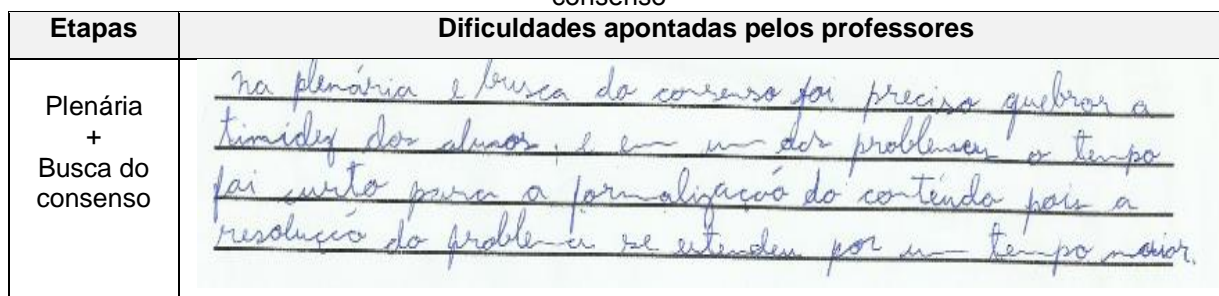 consenso
Etapas
Dificuldades apontadas pelos professores
Plenária
+
Busca do
consenso
na plenária e busca do consenso foi preciso quebrar a
timidez dos alunos, e em um dos problemas o tempo
foi curto para a formalização do conteúdo pois a
resolução do problema se estendeu por um tempo maior.